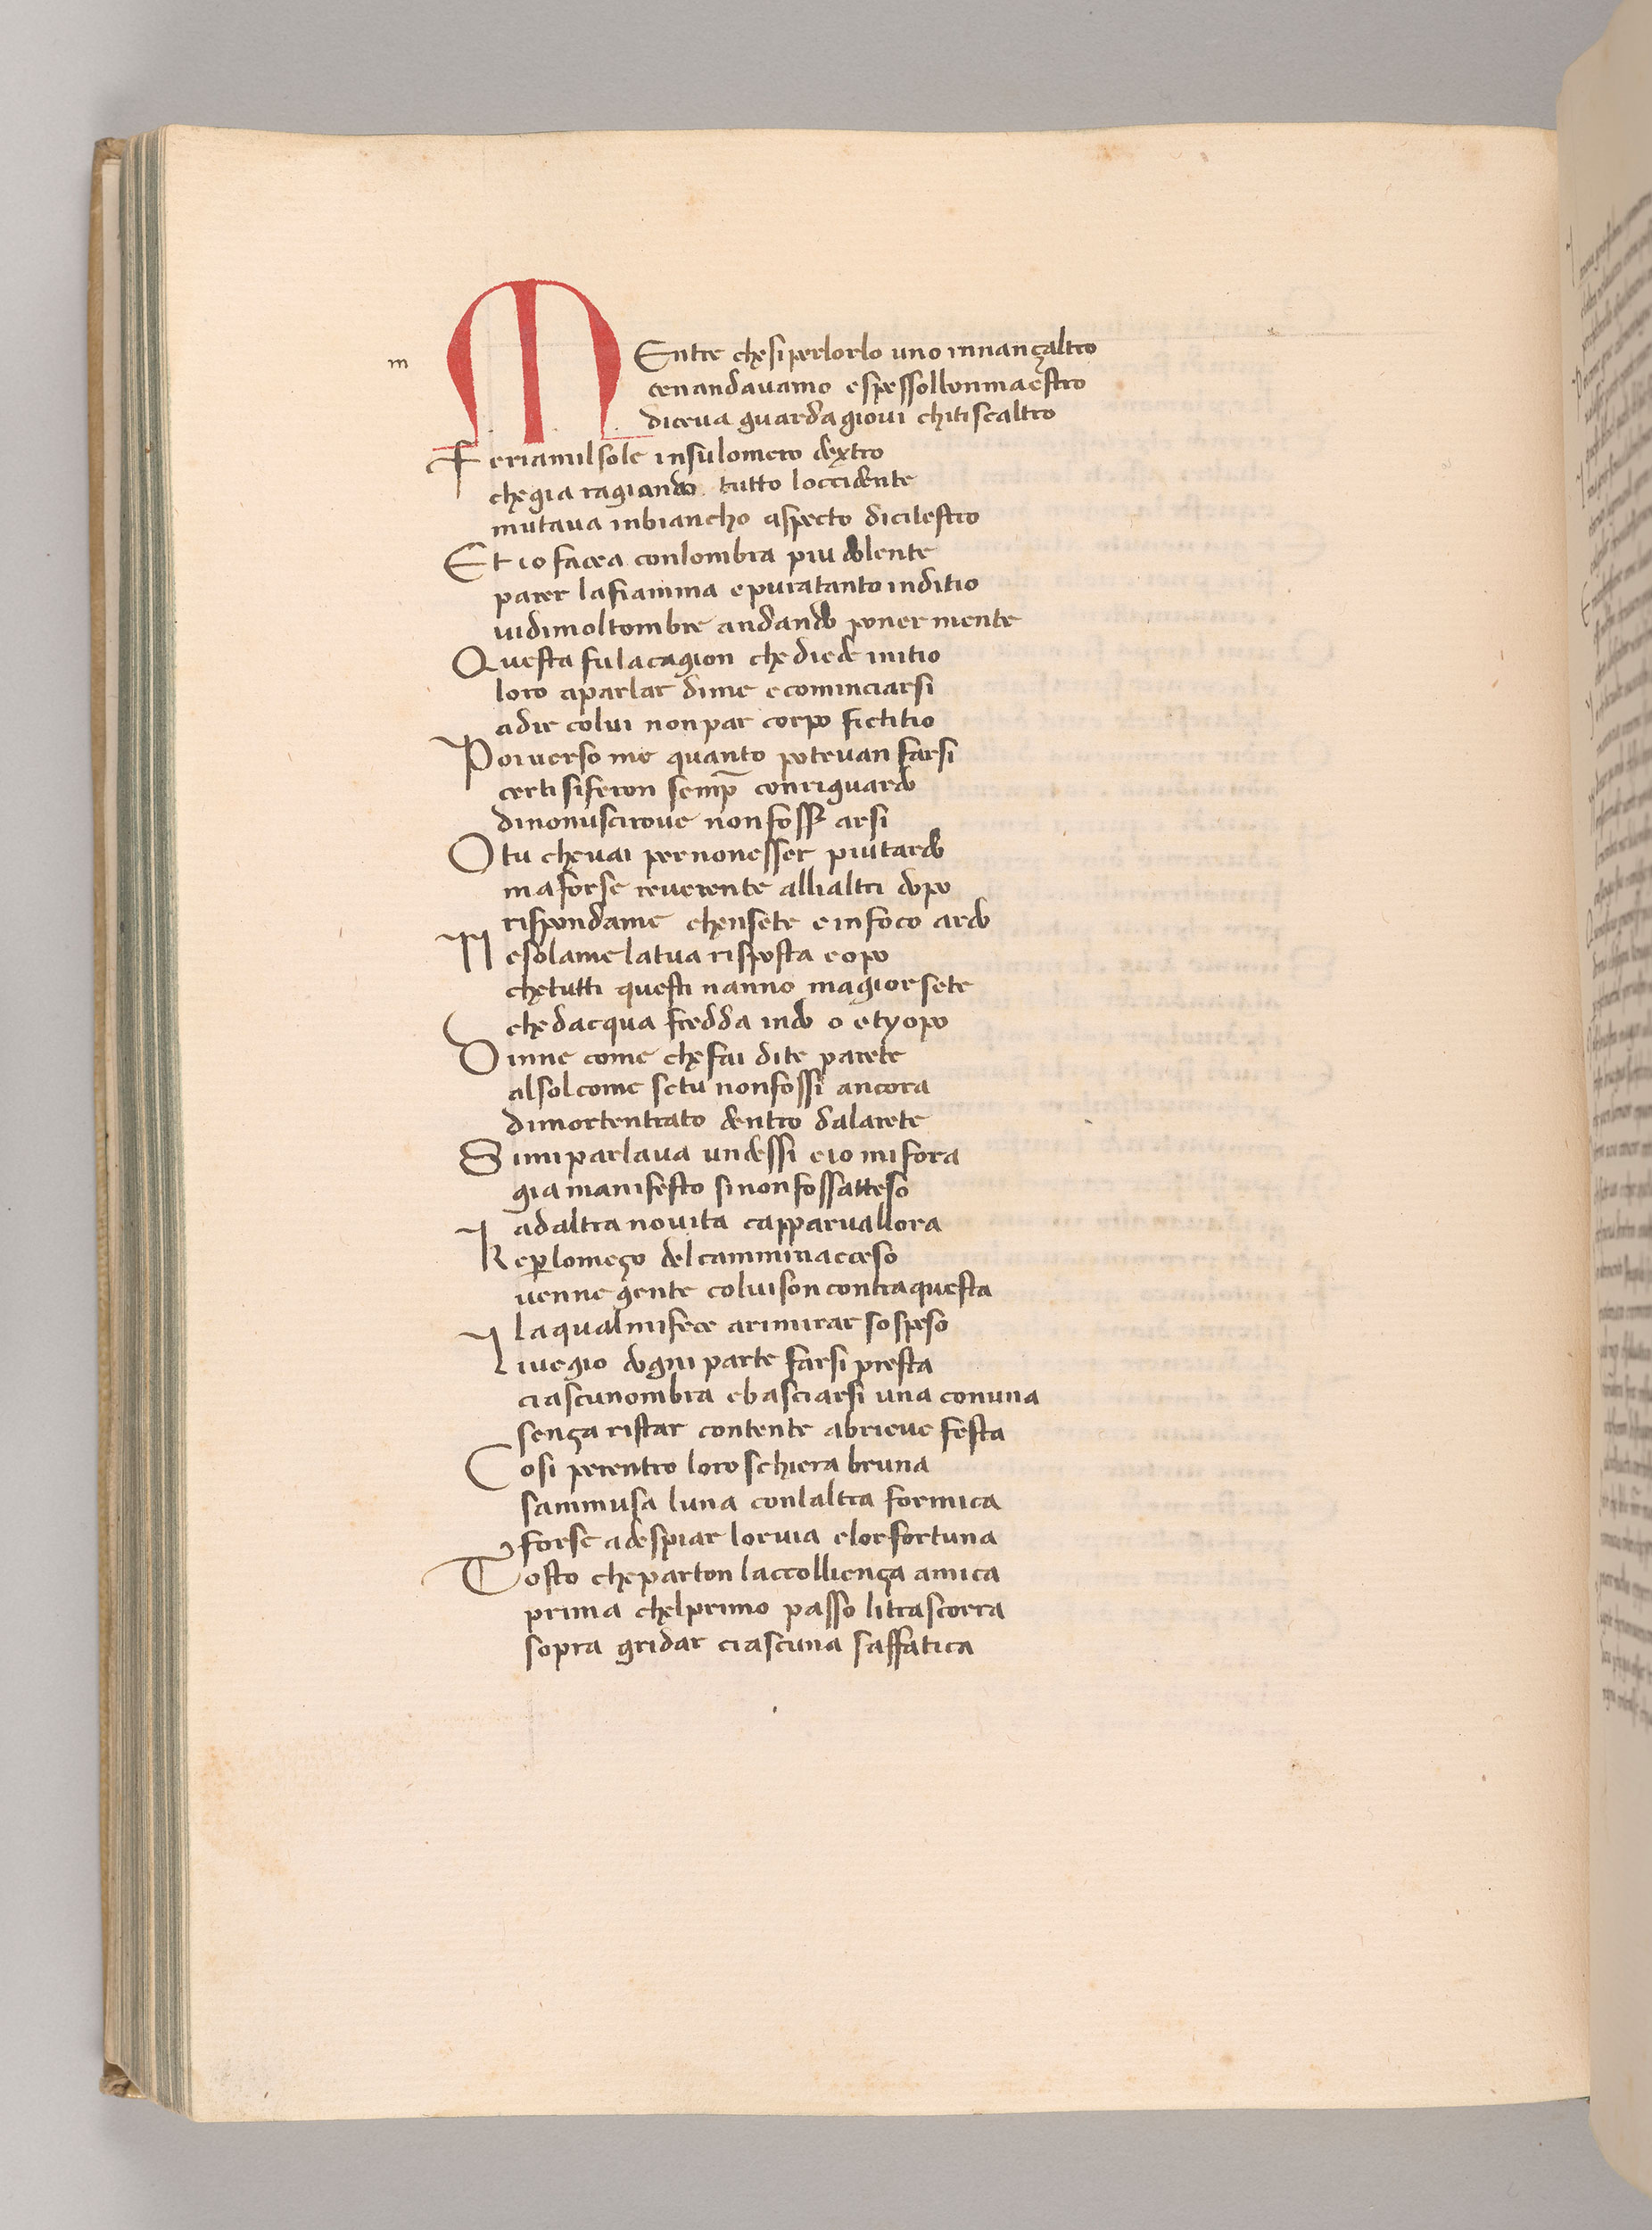 m
MEntre che si per lorlo uno innançaltro
cenandavamo espessollonmaestro
diceva guarda giovi chitiscaltro
Feriamilsole insulomero dextro
che gia ragiando tutto loccidente
mutava inbiancho aspecto dicilestro
Et io facea conlombra piu dolente
parer lafiamma epuratanto inditio
vidimoltombre andando poner mente
Questa fulacagion che diede initio
loro aparlar dime ecominciarsi
adir colui nonpar corpo fictitio
Poiverso me quanto potevan farsi
certi siferon semp̄ conriguardo
dinonuscirove nonfosser arsi
O tu chevai pernonesser piutardo
maforse reverente allialtri dopo
rispondame chensete einfoco ardo
Nesolamelatua risposta eopo
chetutti questi nanno magiorsete
chedacqua fredda indo o etyopo
Dinne come chefai dite parete
alsolcome setu nonfossi ancora
dimortentrato dentro dalarete
Simiparlava undessi eio mifora
gia manifesto sinonfossatteso
adaltra novita capparvallora
Keꝑlomeço delcamminacceso
venne gente colvison contraquesta
laqualmifece arimirar sospeso
Livegio dogni parte farsi presta
ciascunombra ebasciarsi una conuna
sença ristar contente abrieve festa
Cosi perentro loro schiera bruna
sammusa luna conlaltra formica
forse adespiar lorvia elorfortuna
Tosto cheparton laccollienca amica
prima chelprimo passo litrascorra
sopra gridar ciascuna saffatica